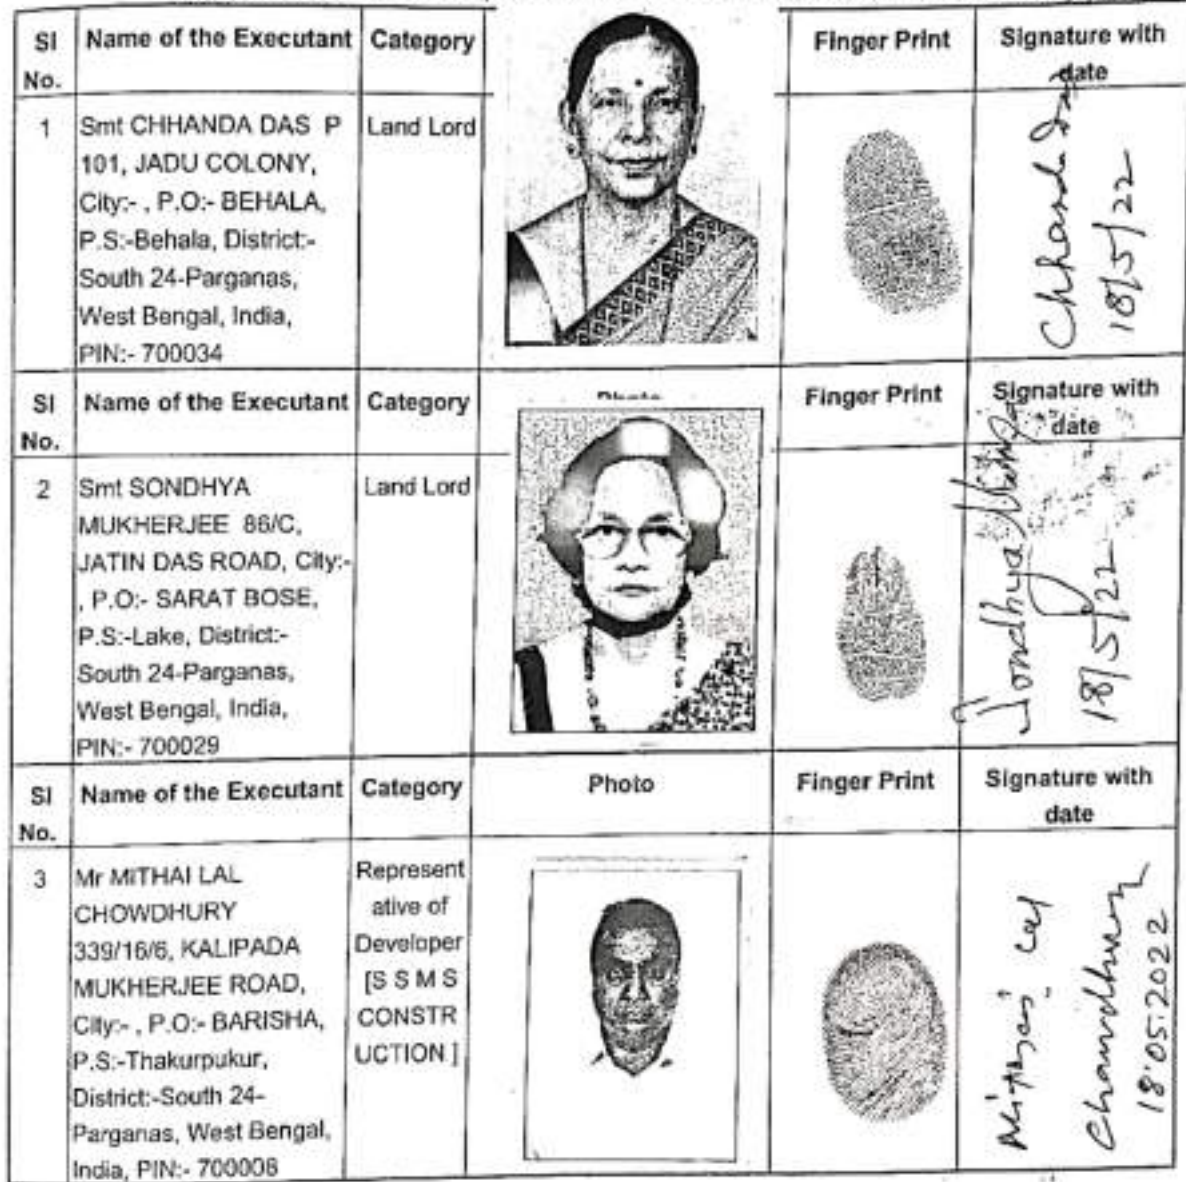 SI No. Name of the Executant Category Finger Print Signature with date
1 Smt CHHANDA DAS P Land Lord
101, JADU COLONY,
City:- , P.O:- BEHALA,
P.S:-Behala, District:-
South 24-Parganas,
West Bengal, India,
PIN:- 700034
Chhanda Das
18/5/22
SI No. Name of the Executant Category Photo Finger Print Signature with date
2 Smt SONDHYA Land Lord
MUKHERJEE 86/C,
JATIN DAS ROAD, City:-
, P.O:- SARAT BOSE,
P.S:-Lake, District:-
South 24-Parganas,
West Bengal, India,
PIN:- 700029
Sondhya
18/5/22
SI No. Name of the Executant Category Photo Finger Print Signature with date
3 Mr MITHAI LAL
CHOWDHURY
339/16/6, KALIPADA
MUKHERJEE ROAD,
City:- , P.O:- BARISHA,
P.S:-Thakurpukur,
District:-South 24-
Parganas, West Bengal,
India, PIN:- 700008
Represent
ative of
Developer
[S S M S
CONSTR
UCTION ]
Chowdhury
18.05.2022